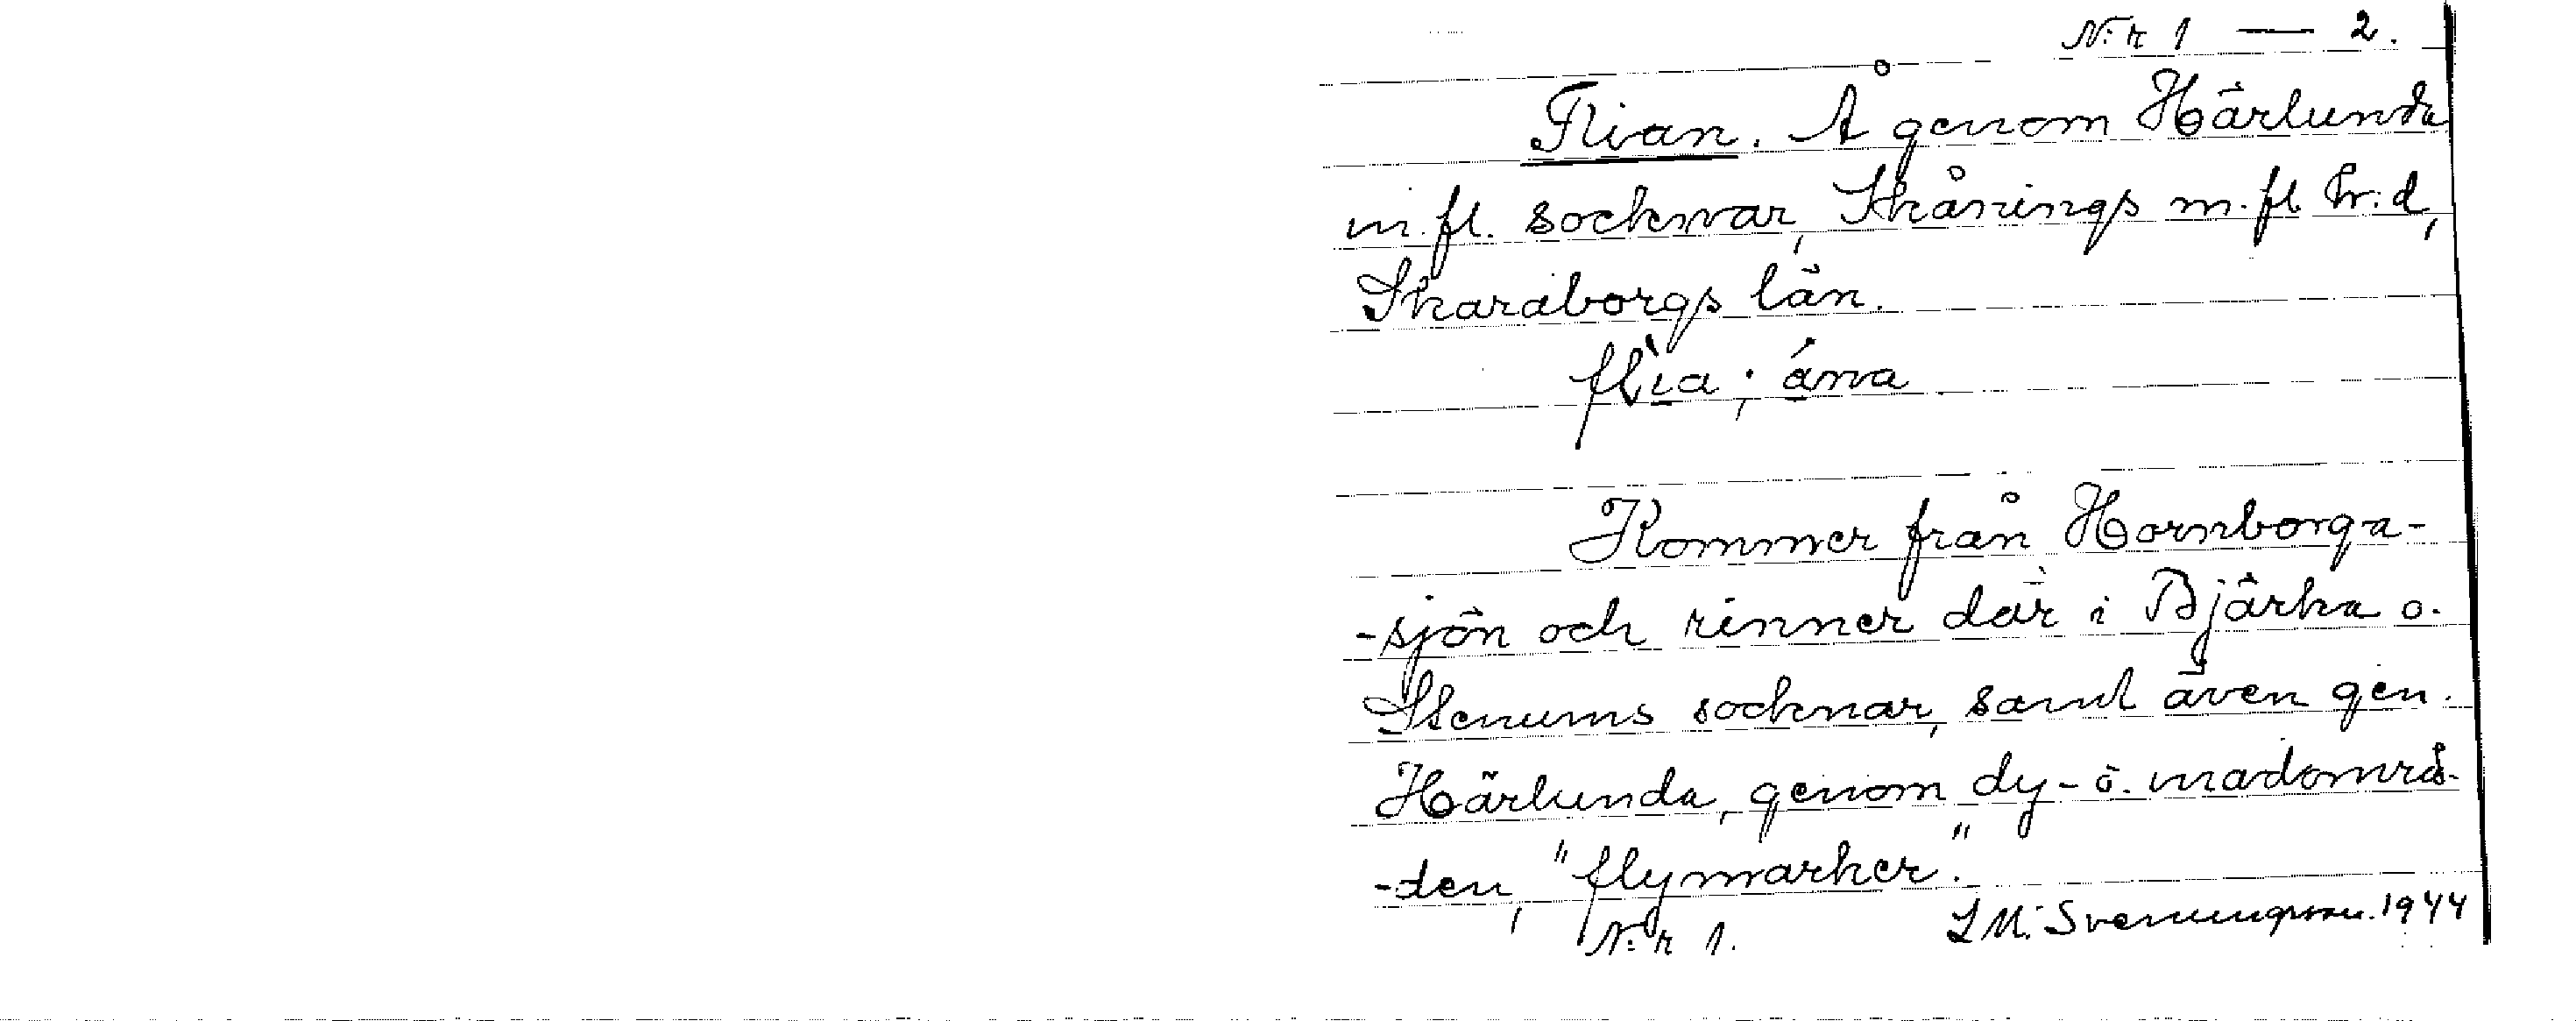 N:r 1 — 2.
Flian. Å genom Härlunda
m.fl. socknar, Skånings m.fl. hr:d,
Skaraborgs län.
flìa; ána
Kommer från Hornborga-
-sjön och rinner där i Bjärka o.
Stenums socknar, samt även gen.
Härlunda, genom dy- o. madområ-
-den, "flymarker."
N:r 1. L M. Svenungsson. 1944